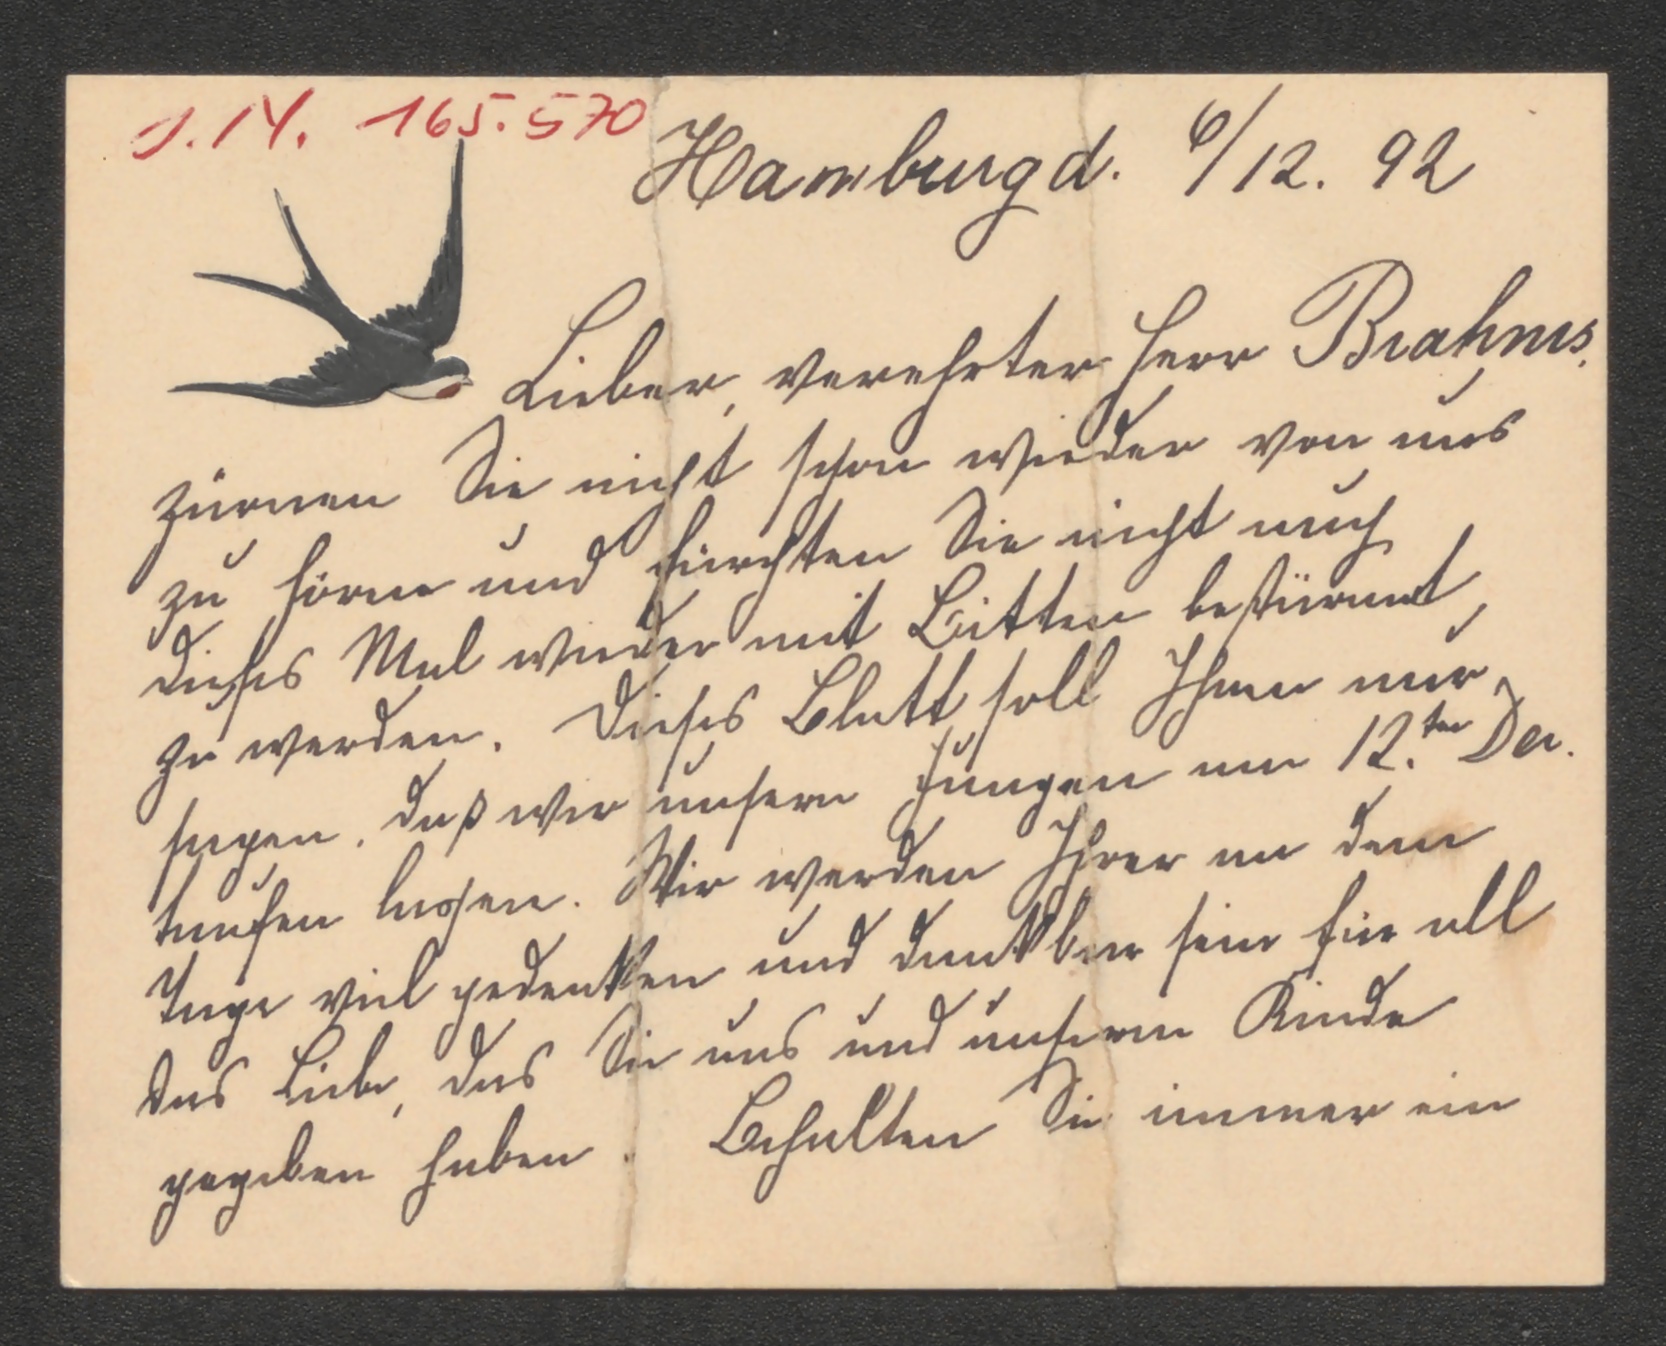 J.N. 165.570
Hamburg d. 6/12. 92
Lieber, verehrter Herr Brahms,
zürnen Sie nicht schon wieder von uns
zu hören und fürchten Sie nicht auch
dieses Mal wieder mit Bitten bestürmt
zu werden. Dieses Blatt soll Ihnen nur
sagen, daß wir unsern Jungen am 12.ten Dec.
taufen lassen. Wir werden Ihrer an dem
Tage viel gedenken und dankbar sein für all
das Liebe, das Sie uns und unserm Kinde
gegeben haben. Behalten Sie immer ein